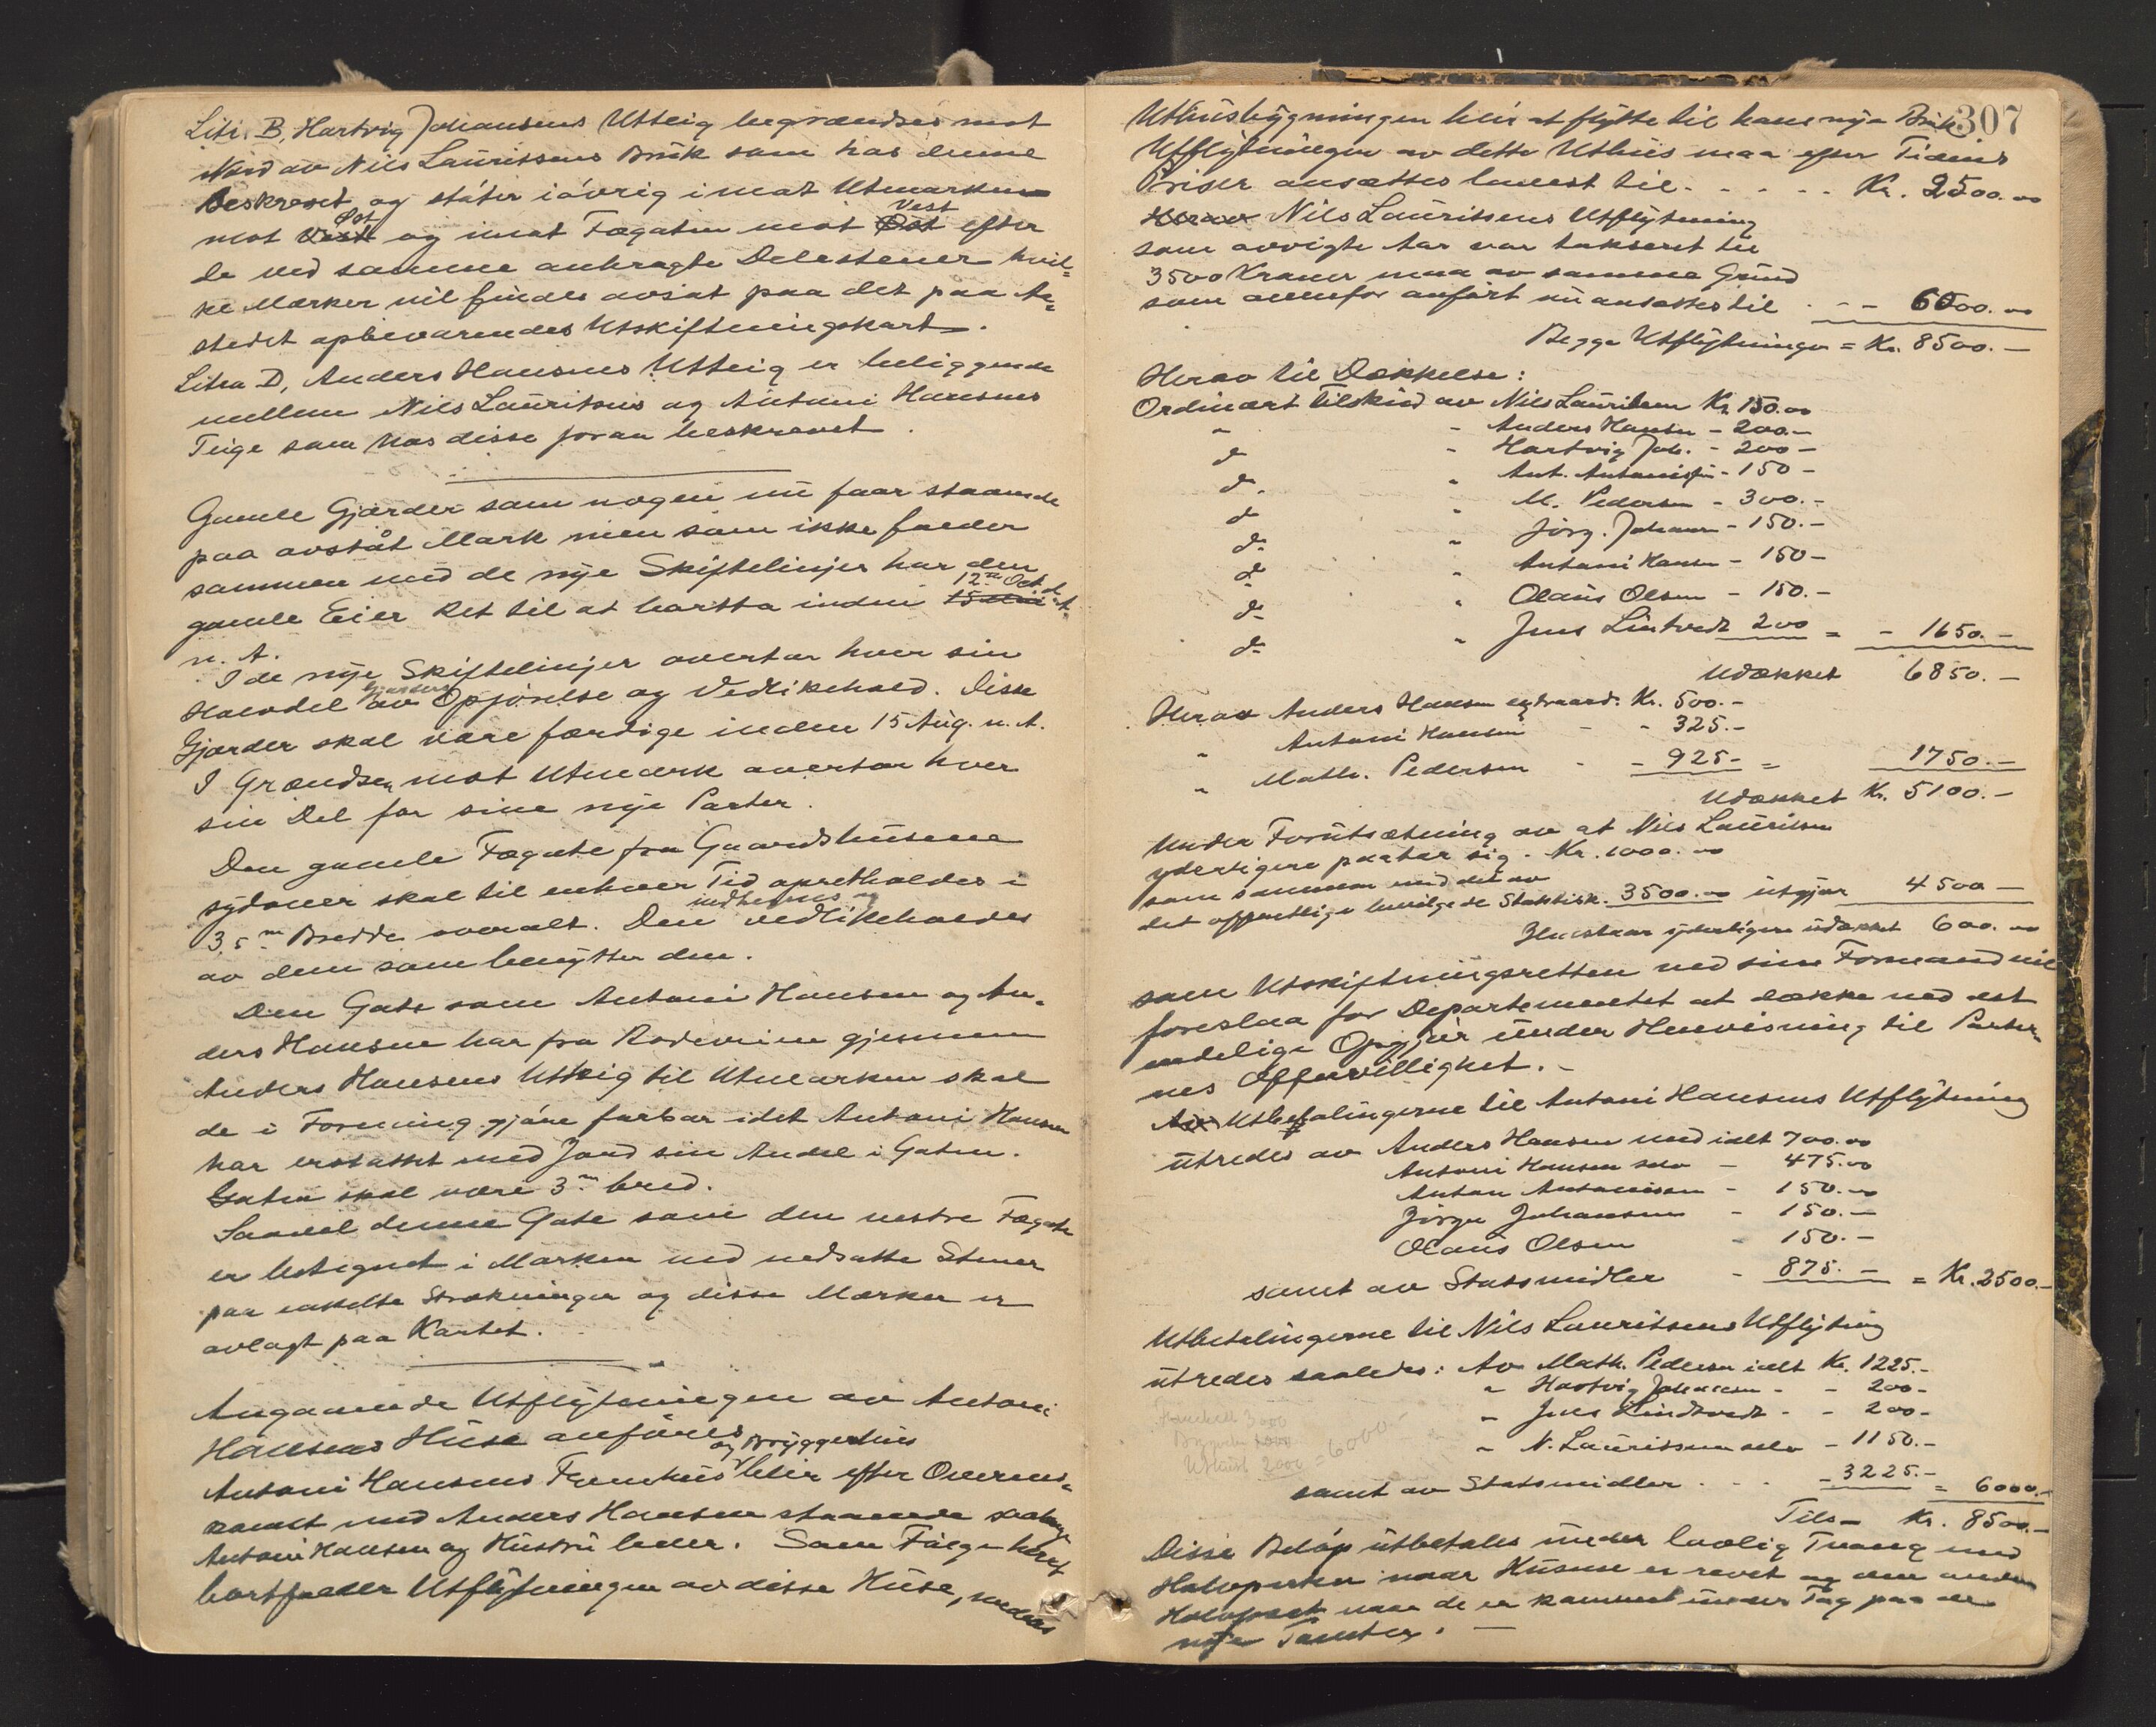 Litr. B, Hartvig Johansens Utteig begrændses mot
Nord av Nils Lauritsens Bruk som hos denne
beskrevet og støter iøvrig imot Utmarken
mot Vest Øst og imot Fægaten mot Øst Vest efter
de ved samme anbragte Delestener hvil-
ke Mærker vil findes avsat paa det paa Aa-
stedet opbevarendes Utskiftningskart.
Litra D, Anders Hansens Utteig er beliggende
mellem Nils Lauritsens og Antoni Hansens
Teige som hos disse foran beskrevet.
Gamle Gjærder som nogen nu faar staaende
paa avståt Mark men som ikke falder
sammen med de nye Skiftelinjer har den
gamle Eier Ret til at bortta inden 12te Oct.
n. A.
I de nye Skiftelinjer overtar hver sin
Halvdel av Gjærders Opførelse og Vedlikehold. Disse
Gjærder skal være færdige inden 15 Aug. n. A.
I Grændsen mot Utmark overtar hver
sin Del for sine nye Parter.
Den gamle Fægate fra Gaardshusene
sydover skal til enhver Tid opretholdes i
3,5 m Bredde overalt. Den vedlikeholdes
av dem som benytter den.
Den Gate som Antoni Hansen og An-
ders Hansen har fra Rodeveien gjennem
Anders Hansens Utteig til Utmarken skal
de i Forening gjøre farbar idet Antoni Hansen
har erstattet med Jord sin Andel i Gaten.
Gaten skal være 3 m bred.
Saavel denne Gate som den vestre Fægate
er betegnet i Marken ved nedsatte Stener
paa enkelte Strækninger og disse Mærker er
avlagt paa Kartet.
Angaaende Utflytningen av Antoni
Hansens Huse anføres
Antoni Hansens Fremhus og Bryggerhus blir efter Overens-
komst med Anders Hansen staaende saalænge
Antoni Hansen og Hustru lever. Som Følge herav
bortfalder Utflytningen av disse Huse, medens
307
Uthusbygningen blir at flytte til hans nye Bruk
Utflytningen av dette Uthus maa efter Tidens
Priser ansættes lavest til - - - - - Kr. 2500.00
Nils Lauritsens Utflytning
som avvigte Aar var takseret til
3500 Kroner maa av samme Grund
som ovenfor anført nu ansættes til - - - 6000.00
Begge Utflytninger = Kr. 8500.-
Herav til Dækkelse:
Ordinært tilskud av Nils Lauritsen Kr. 150.00
" - Anders Hansen - 200.-
do - Hartvig Joh. - 200 -
do - Ant. Antonisen - 150 -
do - M. Pedersen - 300.-
do - Jørg. Johansen - 150.-
do - Antoni Hansen - 150 -
do - Olaus Olsen - 150.-
do - Jens Lindtvedt 200 = - 1650.-
Udækket 6850.-
Herav Anders Hansen extraord. Kr. 500.-
" Antoni Hansen - - 325.-
" Math. Pedersen - - 925 - = 1750.-
Udækket Kr. 5100.-
Under Forutsætning av at Nils Lauritsen
yderligere paatar sig - Kr. 1000.00
som sammen med det av
det offentlige bevilgede Statstilsk. 3500.00 utgjør 4500 -
Gjenstaar yderligere udækket 600.00
som Utskiftningsretten ved sin Formand vil
foreslaa for Departementet at dække ved det
endelige Opgjør under Henvisning til Parter-
nes Offervillighet.-
Utbetalingerne til Antoni Hansens Utflytning
utredes av Anders Hansen med ialt 700.00
Antoni Hansen selv - 475.00
Anton Antonisen - 150.00
Jørgen Johansen - 150.-
Olaus Olsen - 150.-
samt av Statsmidler - 875.- = Kr. 2500.-
Utbetalingerne til Nils Lauritsens Utflytning
utredes saaledes: Av Math. Pedersen ialt Kr. 1225.-
" Hartvig Johansen - - 200 -
" Jens Lindtvedt - - 200 -
" N. Lauritssen selv - 1150.-
Uthuset 2000 = 6000.-
samt av Statsmidler - - - 3225.- = 6000.-
Tils. Kr. 8500.-
Disse Beløp utbetales under lovlig Tvang med
Halvparten naar Husene er revet og den anden
Halvpart naar de er kommet under Tag paa de
nye Tomter. -